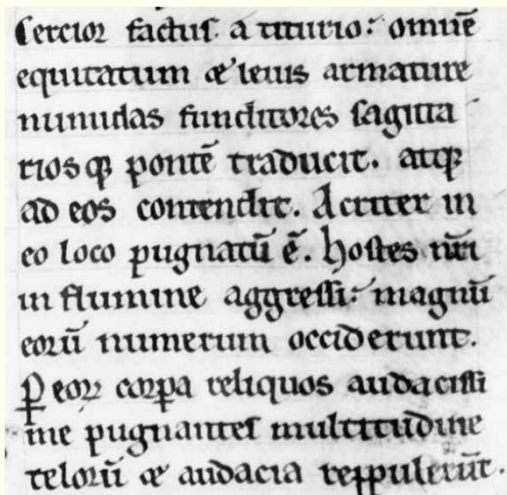 Cercior factus a titurio: omnē
equitatum & leuis armature
numidas funditores sagitta
rios qꝫ pontē traducit. atqꝫ
ad eos contendit. Acriter in
eo loco pugnatū ē. hostes nr̄i
in flumine aggressi: magnū
eorū numerum occiderunt.
ꝑ eoꝝ corꝑa reliquos audacissi
me pugnantes multitudine
telorū & audacia reppulerūt.